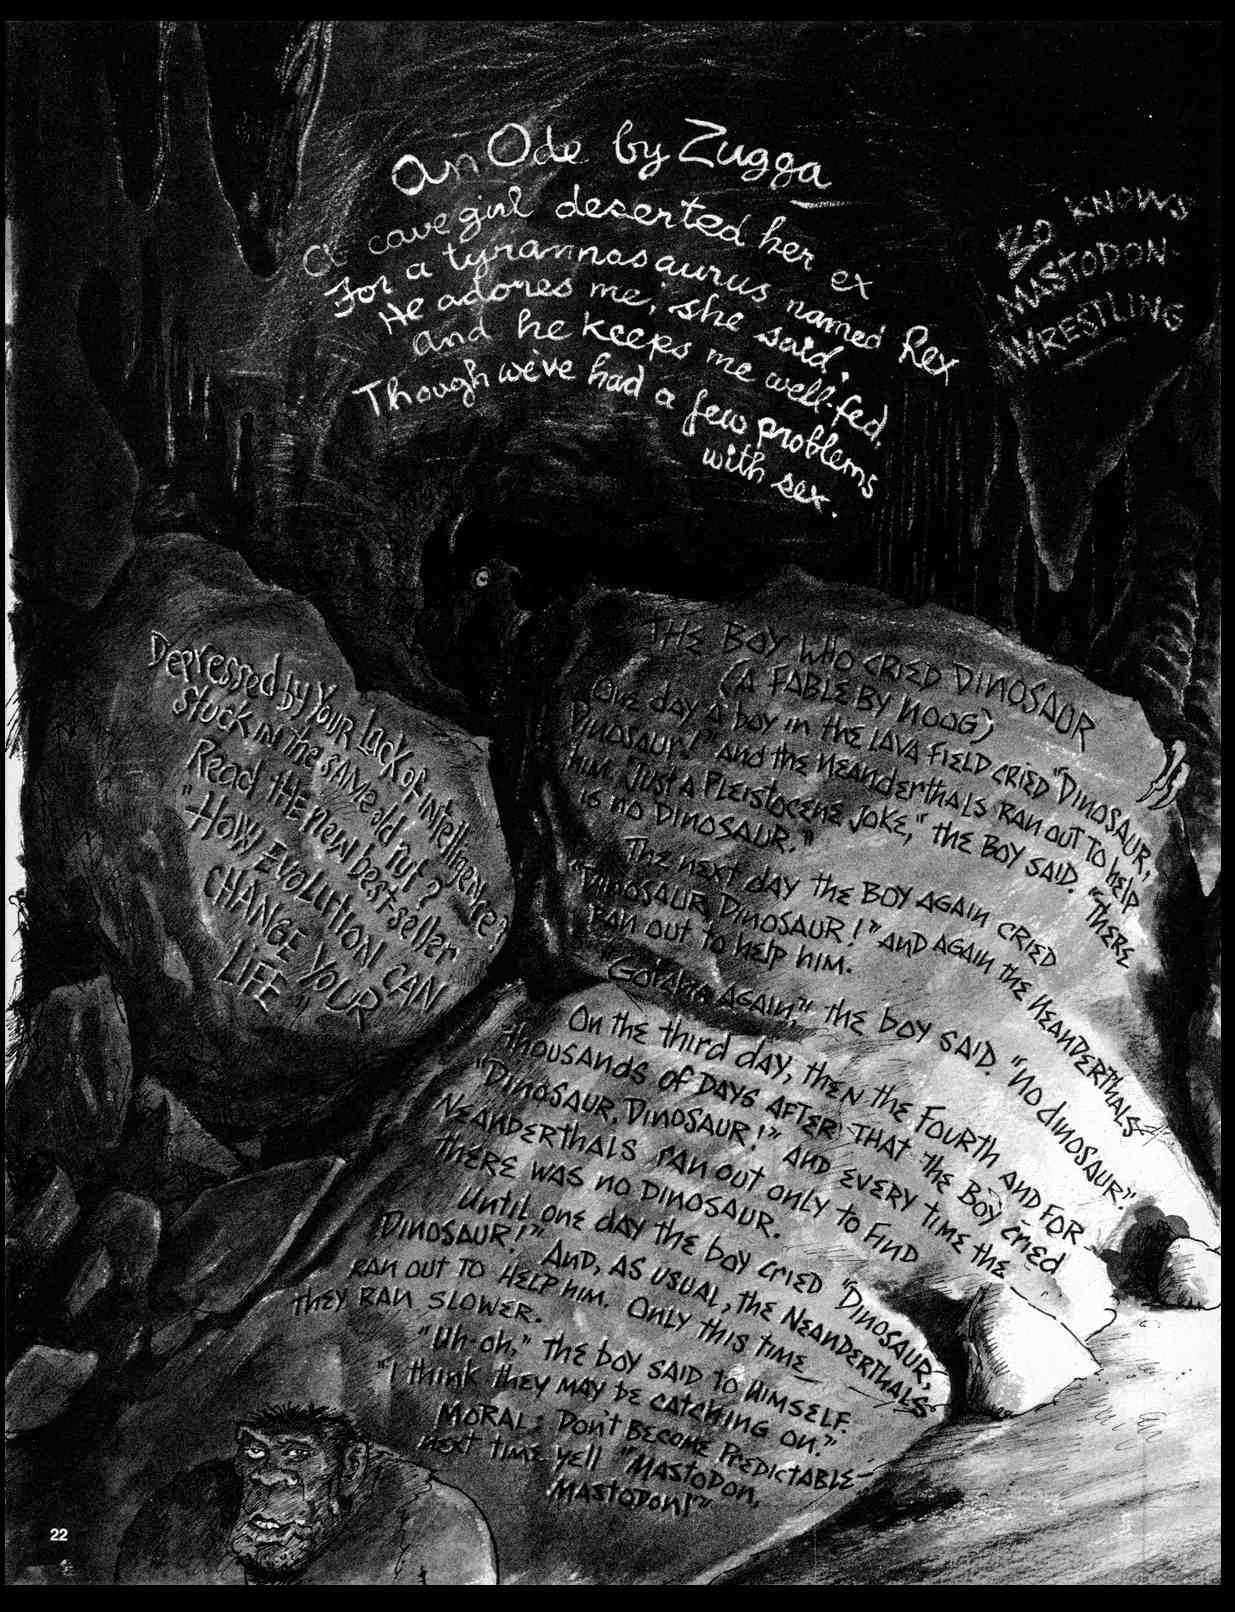 An Ode by Zugga
A cave girl deserted her ex
For a tyrannosaurus named Rex
"He adores me," she said,
"And he keeps me well-fed,
Though we've had a few problems
with sex."
BO KNOWS
MASTODON-
WRESTLING
Depressed by Your Lack of intelligence?
Stuck in the same old rut?
Read the new best-seller
"HOW EVOLUTION CAN
CHANGE YOUR
LIFE"
THE BOY WHO CRIED DINOSAUR
(A FABLE BY NOOG)
One day a boy in the LAVA FIELD CRIED "DINOSAUR,
DINOSAUR!" and the NEANDERTHALS RAN OUT TO help
him. "Just a PLEISTOCENE JOKE," the BOY SAID. "THERE
is no DINOSAUR."
The next day the BOY AGAIN CRIED
"DINOSAUR, DINOSAUR!" AND AGAIN the NEANDERTHALS
RAN OUT to help him.
"Gotcha AGAIN," the boy SAID. "NO dINOSAUR."
On the third day, then the FOURTH AND FOR
thousands of DAYS AFTER THAT the BOY CRIED
"DINOSAUR, DINOSAUR!" AND EVERY TIME the
NEANDERTHALS RAN out only to FIND
THERE WAS NO DINOSAUR.
Until one day the boy CRIED "DINOSAUR,
DINOSAUR!" AND, AS USUAL, the NEANDERTHALS
RAN OUT TO HELP him. Only this time
they RAN SLOWER.
"Uh-oh," the boy SAID to HIMSELF.
"I think they may be catching on."
MORAL: Don't BECOME PREDICTABLE—
next time yell "MASTODON,
MASTODON!"
22